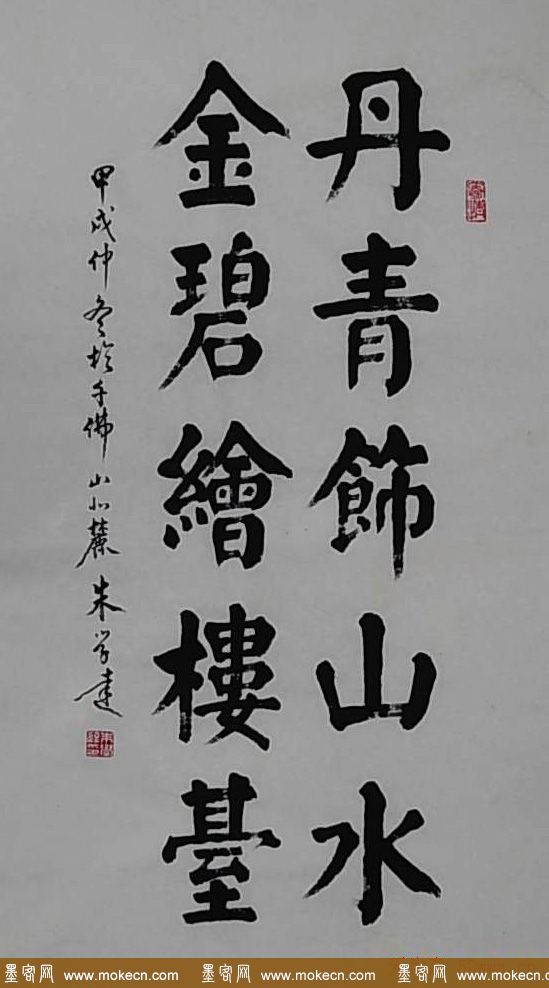 丹青飾山水
金碧繪樓臺
甲戌仲冬於千佛山北麓朱学達
墨客网 www.mokecn.com 墨客网 www.mokecn.com 墨客网 www.mokecn.com